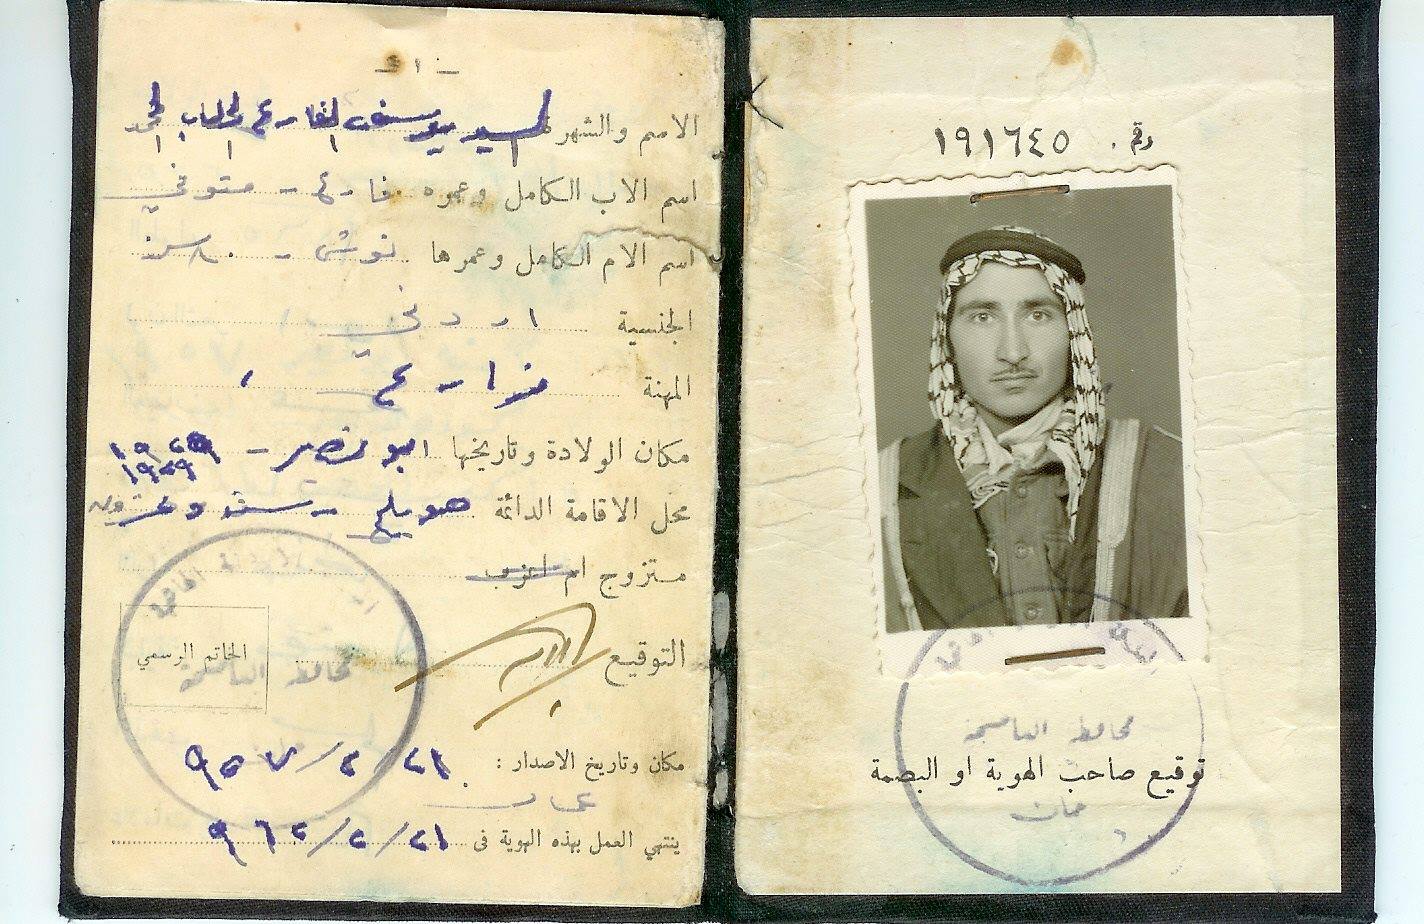 رقم ١٩١٦٤٥
محافظ العاصمة
توقيع صاحب الهوية او البصمة
عمان
الاسم والشهرة السيد يوسف الفارع
اسم الاب الكامل وعمره فارع - متوفي
اسم الام الكامل وعمرها
الجنسية اردني
المهنة مزارع
مكان الولادة وتاريخها ابو نصير - ١٩٢٩
١٩٢٩
محل الاقامة الدائمة صويلح
متزوج ام اعزب
التوقيع
الخاتم الرسمي
محافظ العاصمة
مكان وتاريخ الاصدار : ٢١/٢/٩٥٧
عمان
ينتهي العمل بهذه الهوية فى ٢١/٢/٩٦٢